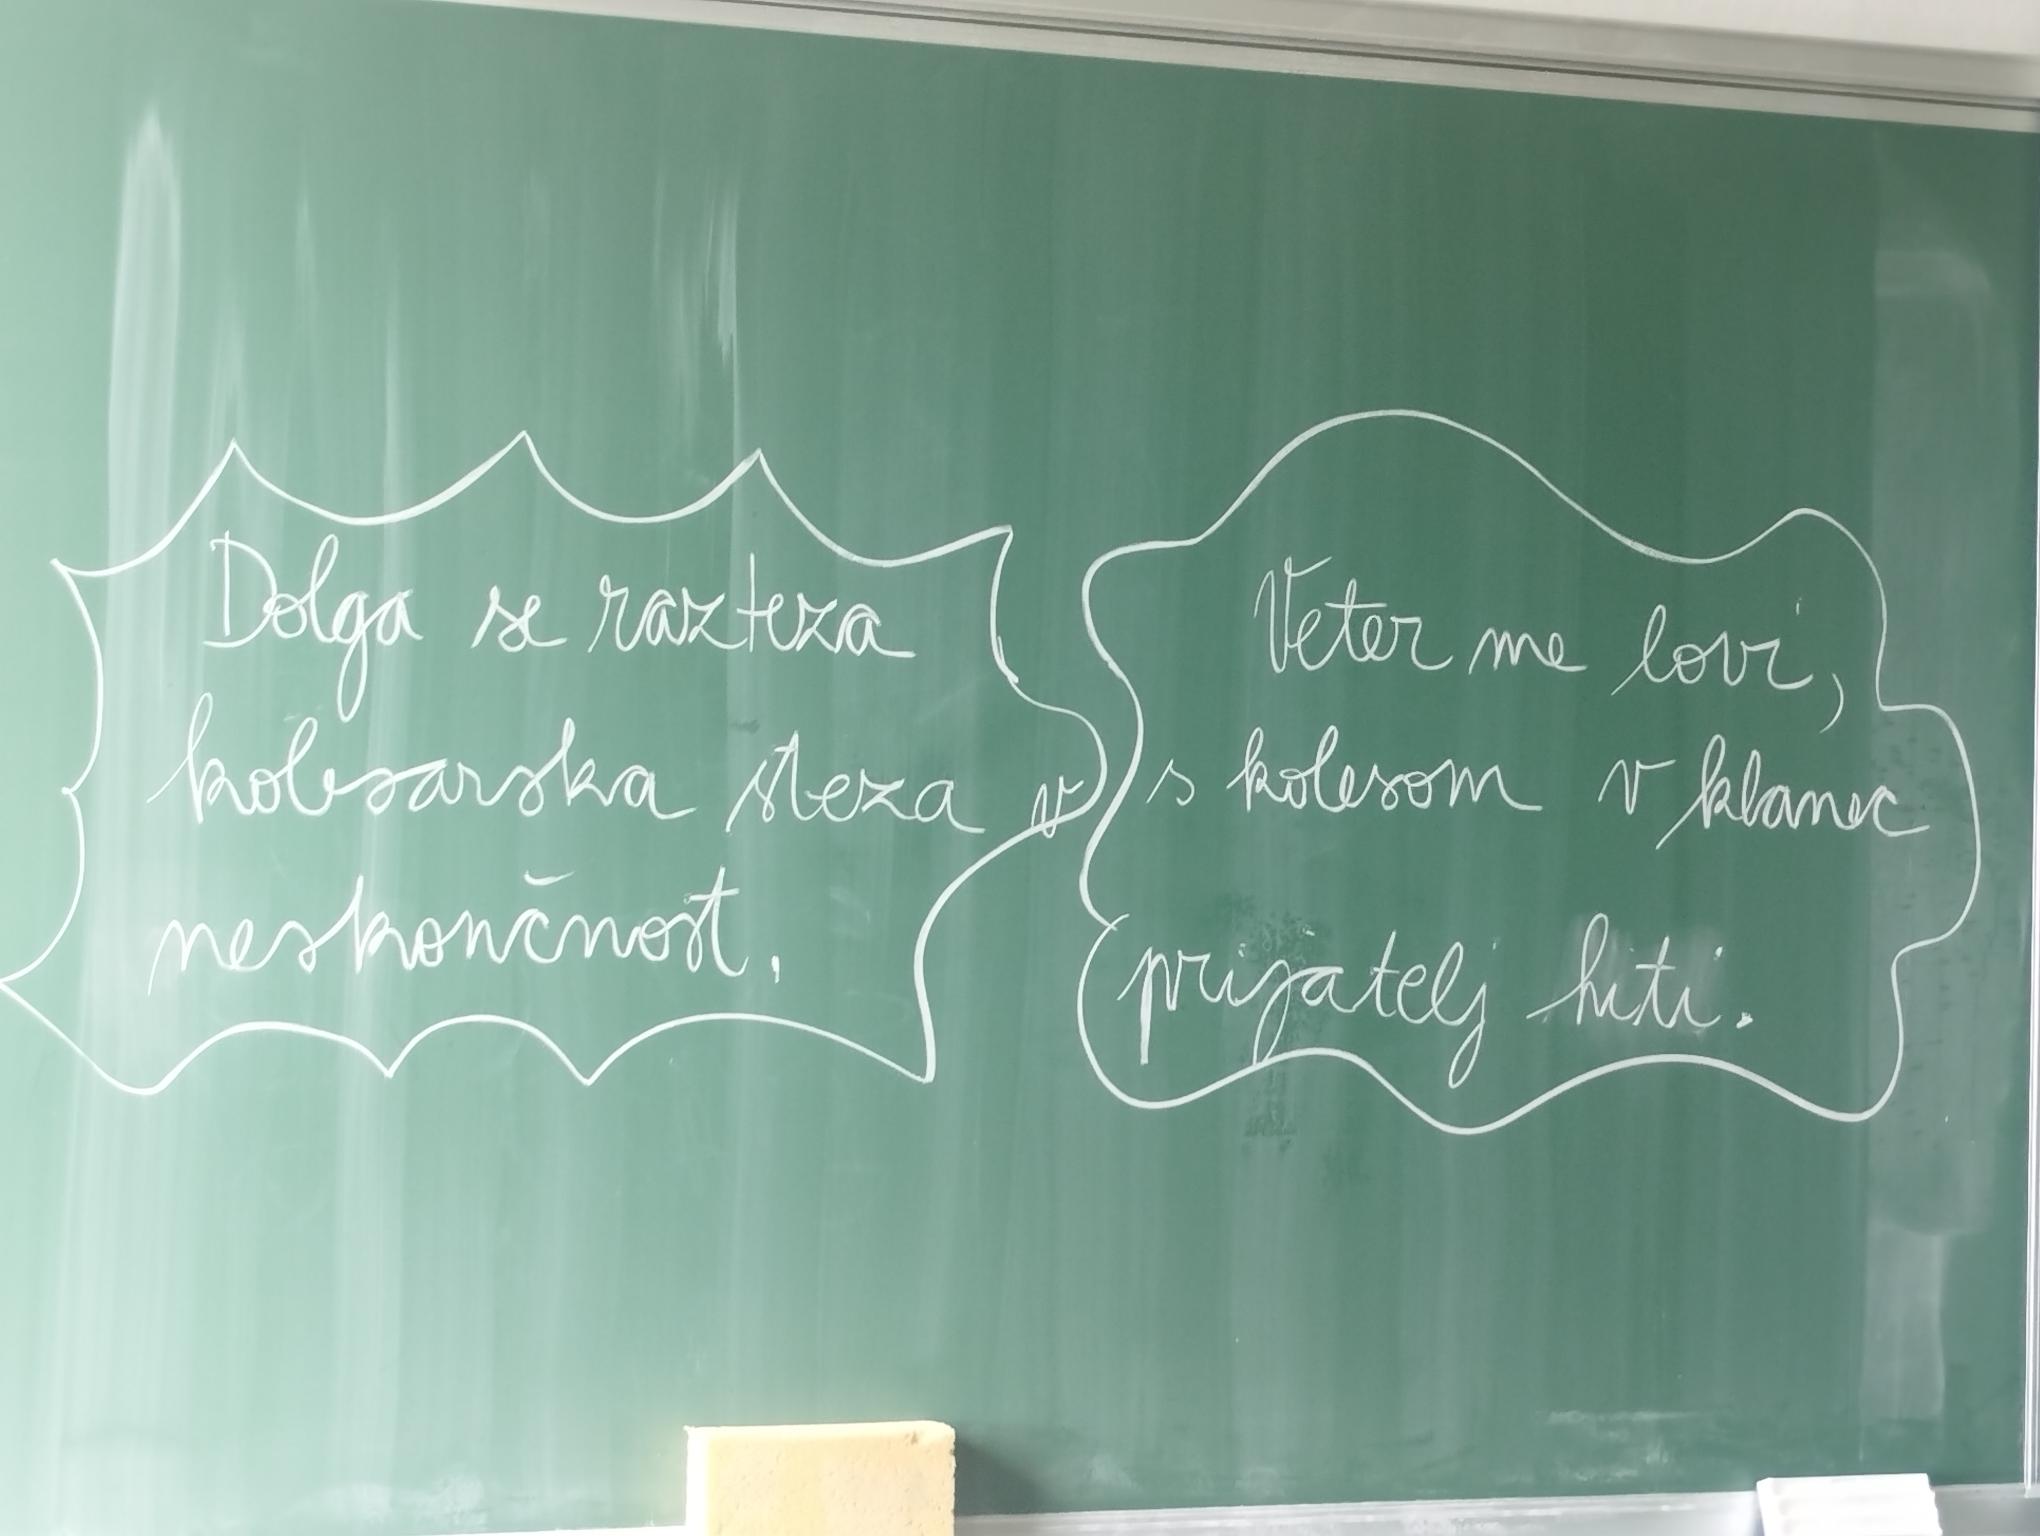 Dolga se razteza
kolesarska steza v
neskončnost.
Veter me lovi,
s kolesom v klanec
prijatelj hiti.